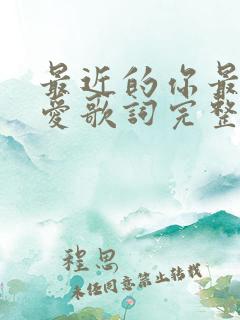 最近的你最
愛歌詞完整
程思
未任同意禁止转载